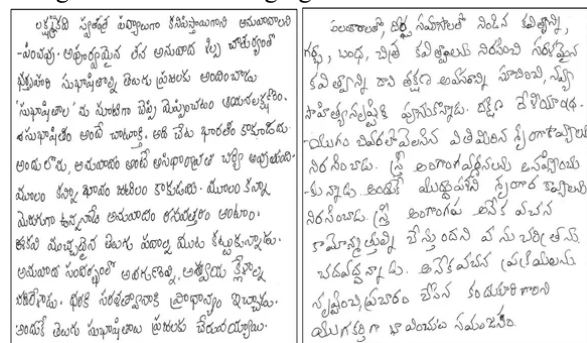 లక్ష్మణకవి స్వతంత్ర పద్యాలుగా కనిపిస్తాయిగాని అనువాదాలని
-పించవు. అపూర్వమైన తన అనువాద శిల్ప చాతుర్యంతో
భర్తృహరి సుభాషితాల్ని తెలుగు ప్రజలకు అందించాడు
'సుభాషితాల'ను సూటిగా చెప్పి మెప్పించటం ఆయనలక్షణం.
సుభాషితం అంటే చాటూక్తి. అది చేటు భారతం కాకూడదు
అందులోను, అనువాదం అంటే అసిధారావ్రతం
మూలం కన్నా అనువాదం జటిలం కాకూడదు. మూలం కన్నా
మెరుగుగా ఉన్ననాడే అనువాదం అనువత్తరం అంటాం.
ఈకవి మచ్చమైన తెలుగు పదాల మూట కట్టుకున్నాడు.
అనువాద సందర్భంలో అన్వయ క్లేశాల్ని
వదిలేశాడు. ధారకి సరళత్వానికి ప్రాధాన్యం ఇచ్చాడు.
అందుకే తెలుగు సుభాషితాలు ప్రజలకు చేరువయ్యాయి.
పలకారాలతో, దీర్ఘ సమాసాలతో నిండిన కవిత్వాన్ని,
గర్భ, బంధ, చిత్ర కవిత్వాలను నిరసించి సరళమైన
కవిత్వాన్ని రాసే తక్షణ అవసరాన్ని సూచించి, నవ్య
సాహిత్యసృష్టికి పూనుకొన్నాడు. దక్షిణ దేశీయాంధ్ర-
-యుగం చివరలో వెలసిన వితిమీరిన శృంగారకావ్యాల
నిరసించాడు. స్త్రీ అంగాంగవర్ణనలను
-కున్నాడు అందుకే ముద్దుపళని శృంగార కావ్యాలను
నిరసించాడు స్త్రీ అంగాంగవ అనేక వచన
కామోన్మత్తుల్ని చేస్తుందని వసు చరిత్రను
చదవవద్దన్నాడు. అనేకవచన ప్రక్రియలను
సృష్టించి, ప్రచారం చేసిన కందుకూరిగారిని
యుగకర్తగా భావించుట సమంజసం.